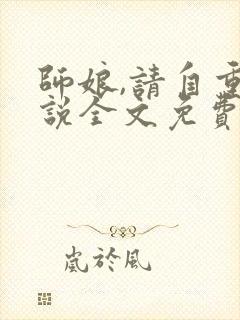 師娘,請自重
說全文免費
嵐於風